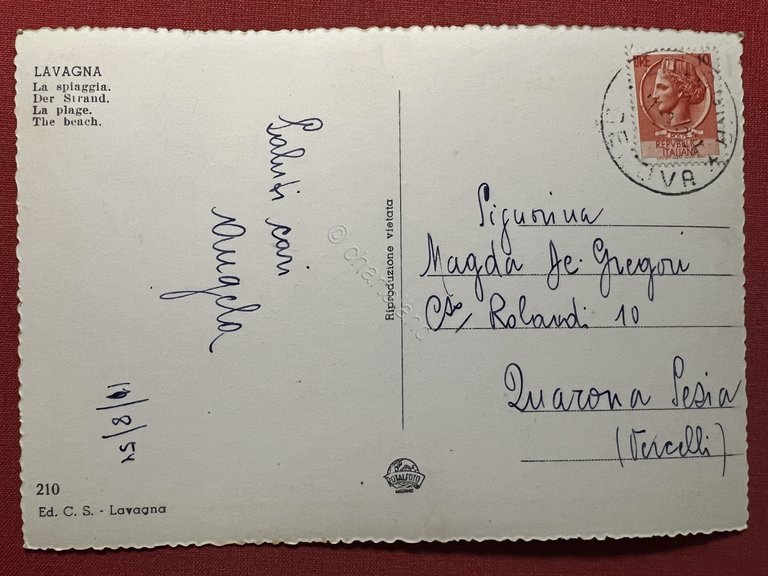 LAVAGNA
La spiaggia.
Der Strand.
La plage.
The beach.
Saluti cari
Angela
19/8/54
210
Ed. C. S. - Lavagna
Riproduzione vietata
LIRE 10
POSTE
REPVBBLICA
ITALIANA
Signorina
Magda De Gregori
C.so Rolandi 10
Quarona Sesia
(Vercelli)
TOTALFOTO
MILANO